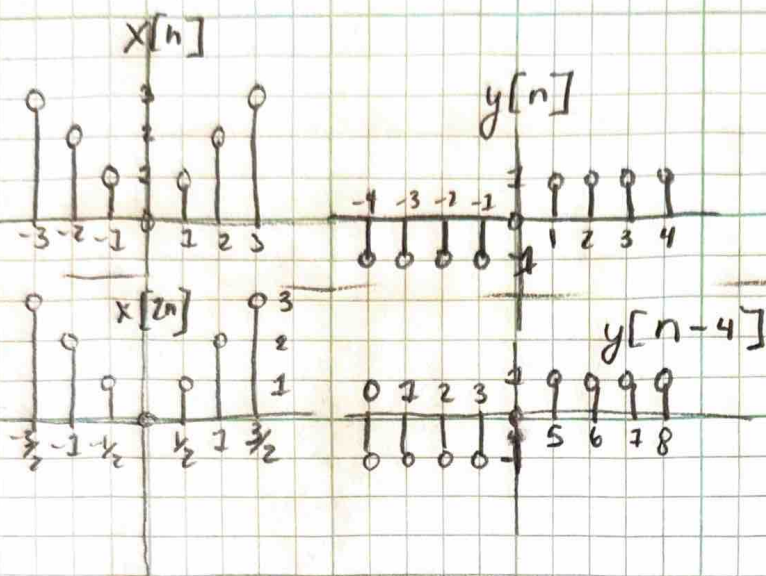 x[n]
3
2
1
-3 -2 -1 1 2 3
y[n]
1
-4 -3 -2 -1
1 2 3 4
-1
x[2n]
3
2
1
-3/2 -1 -1/2 1/2 1 3/2
y[n-4]
1
0 1 2 3
5 6 7 8